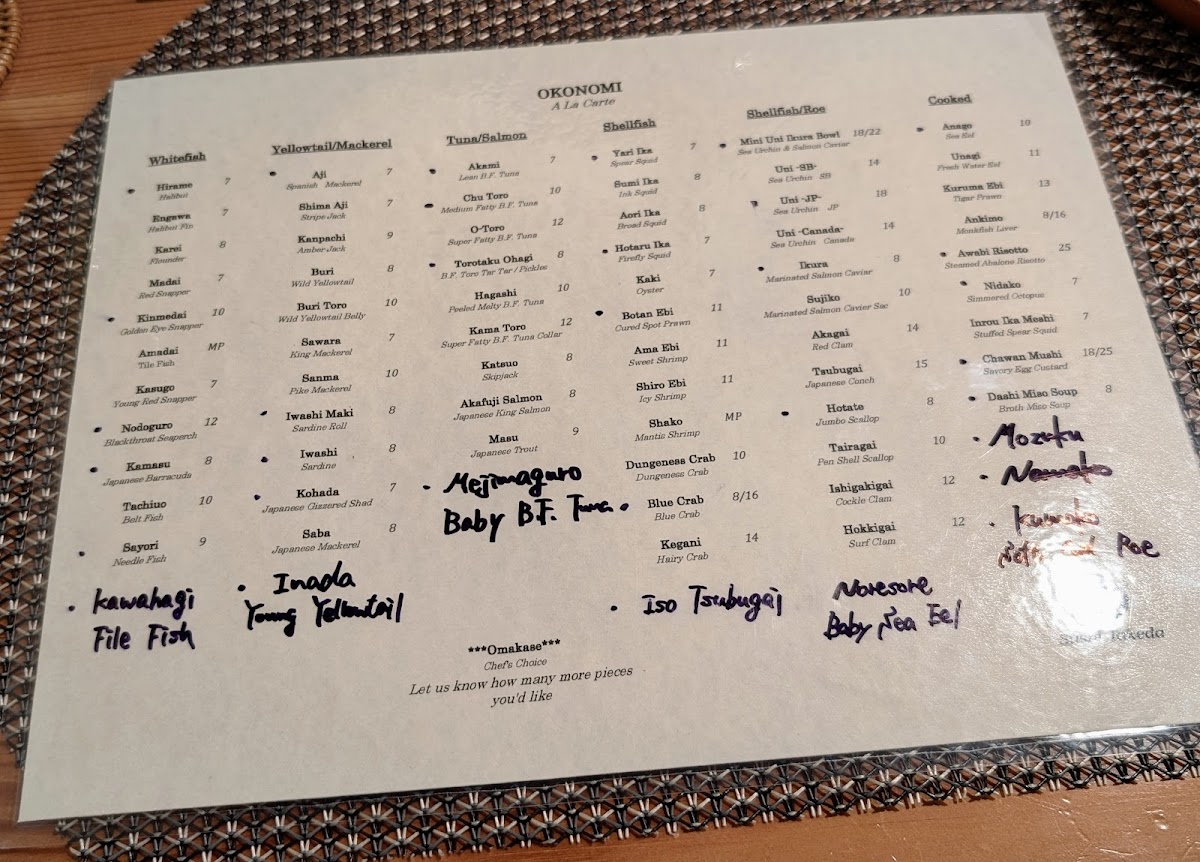 OKONOMI
A La Carte
Whitefish
Hirame 7
Halibut
Engawa 7
Halibut Fin
Karei 8
Flounder
Madai 7
Red Snapper
Kinmedai 10
Golden Eye Snapper
Amadai MP
Tile Fish
Kasugo 7
Young Red Snapper
Nodoguro 12
Blackthroat Seaperch
Kamasu 8
Japanese Barracuda
Tachiuo 10
Belt Fish
Sayori 9
Needle Fish
Kawahagi
File Fish
Yellowtail/Mackerel
Aji 7
Spanish Mackerel
Shima Aji 7
Stripe Jack
Kanpachi 9
Amber Jack
Buri 8
Wild Yellowtail
Buri Toro 10
Wild Yellowtail Belly
Sawara 7
King Mackerel
Sanma 10
Pike Mackerel
Iwashi Maki 8
Sardine Roll
Iwashi 8
Sardine
Kohada 7
Japanese Gizzered Shad
Saba 8
Japanese Mackerel
Inada
Young Yellowtail
Tuna/Salmon
Akami 7
Lean B.F. Tuna
Chu Toro 10
Medium Fatty B.F. Tuna
O-Toro 12
Super Fatty B.F. Tuna
Torotaku Ohagi 8
B.F. Toro Tar Tar / Pickles
Hagashi 10
Peeled Melty B.F. Tuna
Kama Toro 12
Super Fatty B.F. Tuna Collar
Katsuo 8
Skipjack
Akafuji Salmon 8
Japanese King Salmon
Masu 9
Japanese Trout
Mejimaguro
Baby B.F. Tuna
Shellfish
Yari Ika 7
Spear Squid
Sumi Ika 8
Ink Squid
Aori Ika 8
Broad Squid
Hotaru Ika 7
Firefly Squid
Kaki 7
Oyster
Botan Ebi 11
Cured Spot Prawn
Ama Ebi 11
Sweet Shrimp
Shiro Ebi 11
Icy Shrimp
Shako MP
Mantis Shrimp
Dungeness Crab 10
Dungeness Crab
Blue Crab 8/16
Blue Crab
Kegani 14
Hairy Crab
Iso Tsubugai
Shellfish/Roe
Mini Uni Ikura Bowl 18/22
Sea Urchin & Salmon Caviar
Uni -SB- 14
Sea Urchin SB
Uni -JP- 18
Sea Urchin JP
Uni -Canada- 14
Sea Urchin Canada
Ikura 8
Marinated Salmon Caviar
Sujiko 10
Marinated Salmon Caviar Sac
Akagai 14
Red Clam
Tsubugai 15
Japanese Conch
Hotate 8
Jumbo Scallop
Tairagai 10
Pen Shell Scallop
Ishigakigai 12
Cockle Clam
Hokkigai 12
Surf Clam
Noresore
Baby Sea Eel
Cooked
Anago 10
Sea Eel
Unagi 11
Fresh Water Eel
Kuruma Ebi 13
Tiger Prawn
Ankimo 8/16
Monkfish Liver
Awabi Risotto 25
Steamed Abalone Risotto
Nidako 7
Simmered Octopus
Inrou Ika Meshi 7
Stuffed Spear Squid
Chawan Mushi 18/25
Savory Egg Custard
Dashi Miso Soup 8
Broth Miso Soup
Mozuku
Namako
Roe
***Omakase***
Chef's Choice
Let us know how many more pieces
you'd like
Sushi Takeda